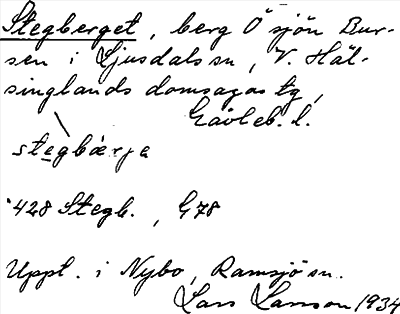 Stegberget, berg Ö sjön Bur-
sen i Ljusdals sn, V. Häl-
singlands domsagas tg,
Gävleb. l.
stegbärje
428 Stegb., G78
Uppt. i Nybo, Ramsjö sn.
Lars Larsson 1934